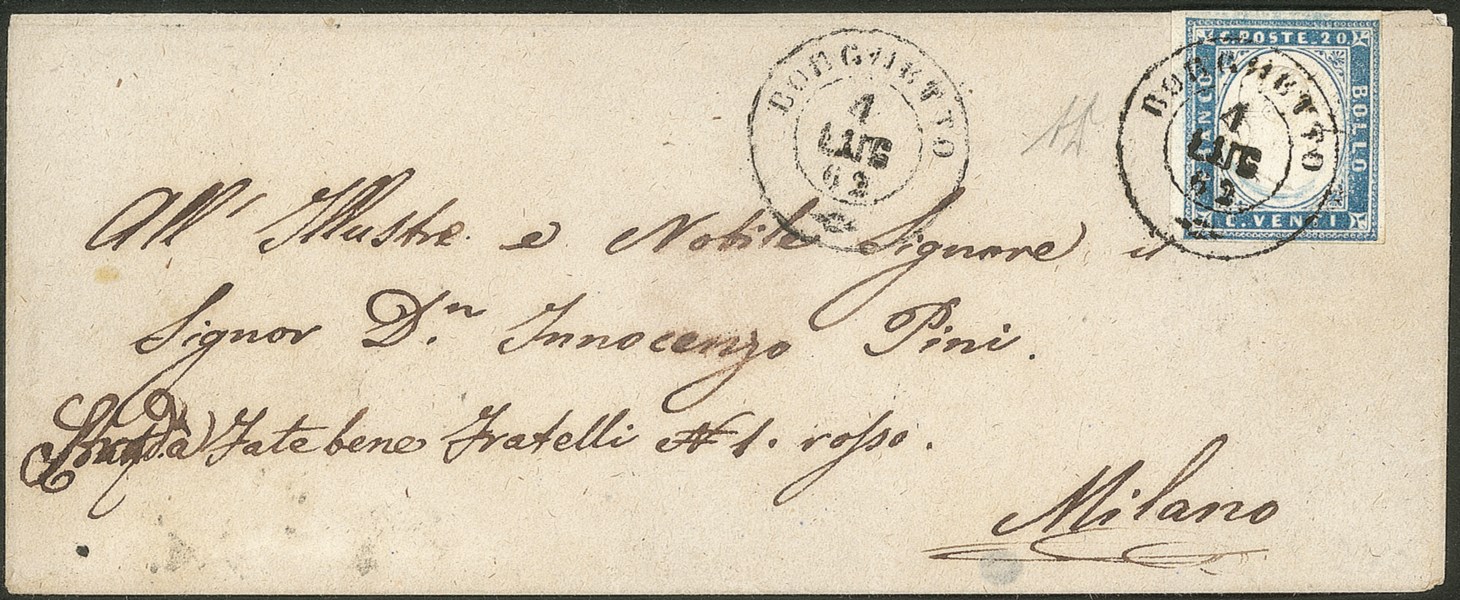 BORGHETTO
1
LUG
62
C. POSTE. 20.
FRANCO
BOLLO
C. VENTI
BORGHETTO
1
LUG
62
All' Illustre e Nobile Signore il
Signor Dn. Innocenzo Pini.
Strada Fate bene Fratelli N 1. rosso.
Milano